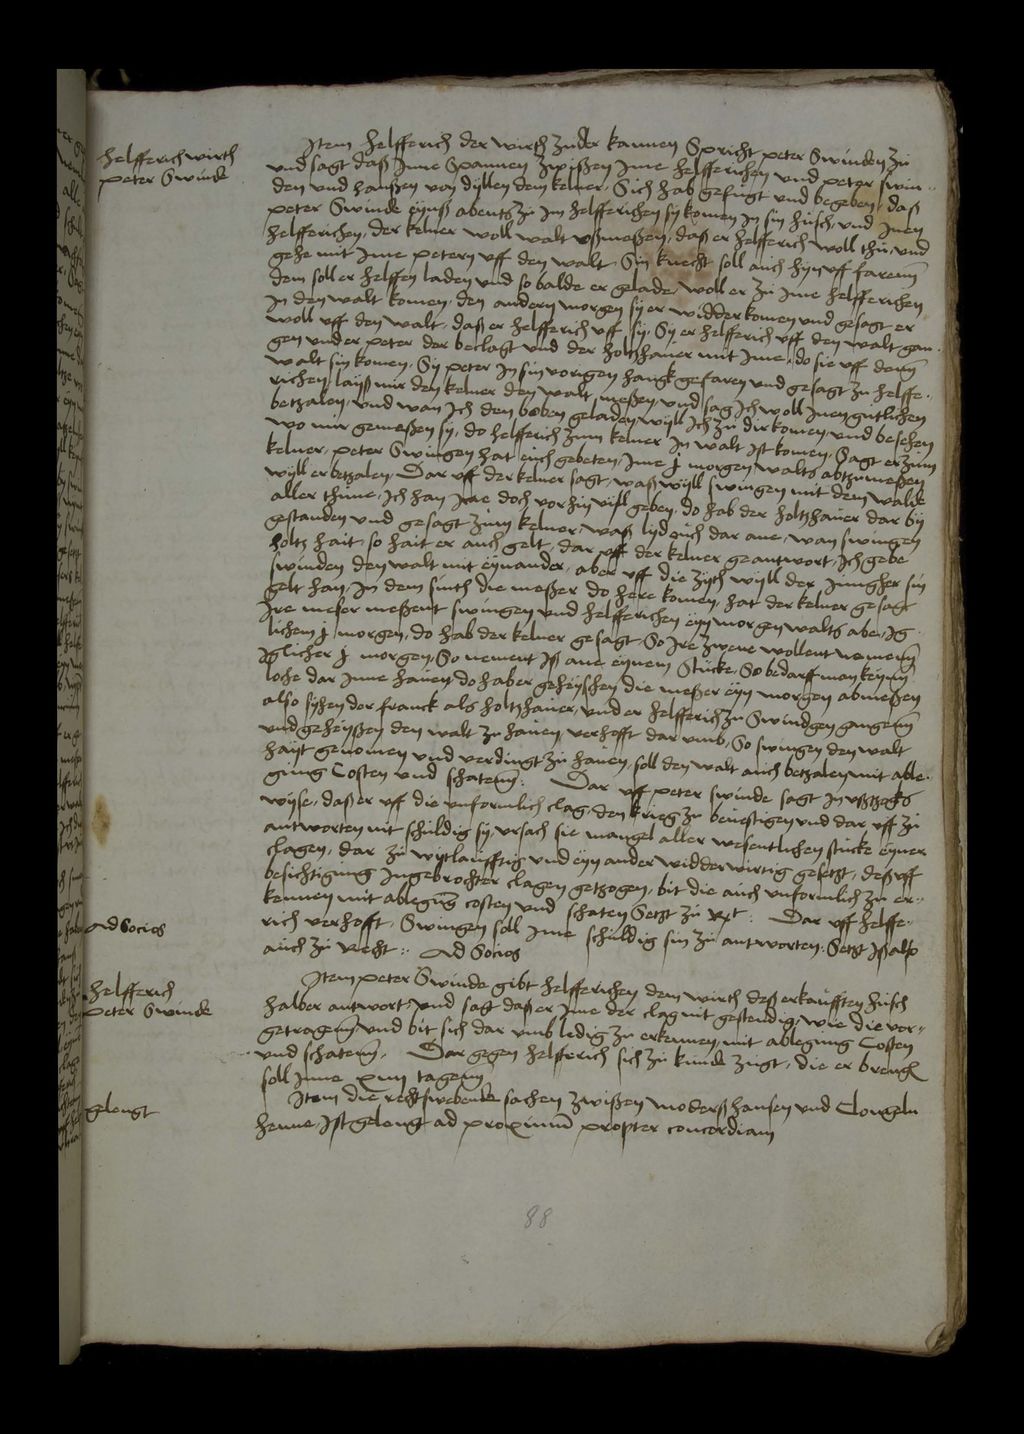 helfferich wirth
peter Swinde
Item helfferich der wirth zu der kannen Spricht peter Swinden zu
und sagt daß Inne Spannen zwißen Ime helfferichen und peter swin-
den und hanßen von dyllen dem kelner, Sich hab gefugt und begeben, daß
peter Swinde eynß abents zu Im helfferichen sy komen In sin husch, und Inen
helfferichen, der kelner woll walt ußmeßen, daß er helfferich woll thu, und
gehe mit Ime petern uff den walt Sin knecht soll auch hyn uff faren
dem soll er helffen laden und so balde er gelade woll er zu Ime helfferichen
In den walt komen, den andern morgen sy er widder komen und gesagt er
woll uff den walt, daß er helfferich uff sy, Sy er helfferich uff den walt gan-
gen und er peter der beclagt und der holtzhauer mit Ime, do sie uff den
walt sin komen, Sy peter In sin vorigen hangk gefaren und gesagt zu helffe-
richen layß mir den kelner den walt meßen und sag Ich woll Inen gutlichen
betzalen, und wan Ich den boben geladen wyll Ich zu dir komen, und besehen
wo mir gemeßen sy, do helfferich zum kelner In walt Ist komen, Sagt er zum
kelner, peter Swingen hat euch gebeten, Ime j morgen walts abtzumeßen
wyll er betzalen, Dar uff der kelner sagt, waß wyll swingen mit dem walde
aller thune, Ich han Ime doch vorhin vyll geben, do hab der holtzhauer dar by
gestanden und gesagt zum kelner, waß lyd euch dar ane, wan swingen
holtz hait so hait er auch gelt, dar uff der kelner geantwort, Ich gebe
swinden den walt mit eynander, aber uff die zyth wyll der Jungher sin
gelt han, In dem sinth die meßer do here komen, hat der kelner gesagt
Ire meser meßent swingen und helfferichen eyn morgen walts aber, Ig-
lichem j morgen, do hab der kelner gesagt, So Ire zwene wollent nemen
Iglicher j morgen, So nement Iß ane eynem Stucke, So bedarff man keynn
loche dar Inne hauen, do hab er geheyschen die meßer eyn morgen abmeßen
also syhen der franck als holtzhauer, und er helfferich zu Swindgen gangen
und geheyßen den walt zu hauen, verhofft dar umb, So swingen den walt
hayt genomen und verdingt zu hauen, soll den walt auch betzalen mit able-
gung Costen und schaten, Dar uff peter swinde sagt In ußtzogs
wyse, daß er uff die unformlich clag, den krieg zu bevestigen und dar uff zu
antworten nit schuldig sy, ursach sie mangel aller wesentlichen stucke eyner
clagen, dar zu wytlaufftig und eyn ander widderwirtig gesetzt, deß uff
besichtigung Ingebrochter clagen getzogen, bit die auch unformlich zu er-
kennen mit ablegung costen und schaten Setzt zu Rt Dar uff helffe-
rich verhofft, Swingen soll Ime schuldig sin zu antworten, Setzt Iß also
auch zu Recht: Ad Socios
Ad Socios
helfferich
Peter Swinde
Item peter Swinde gibt helfferichen dem wirth deß erkaufften husch
halber antwort, und sagt daß er Ime der clag nit gestendig, wie die vor-
getragen und bit sich dar umb ledig zu erkennen, mit ablegung Costen
und schaten, Dar gegen helfferich sich zu kunde zugt, die er brengen
soll Inne xiiij tagen
gelengt
Item die rechtswebende sachen zwißen moderß hansen und Clongeln
henne, Ist gelengt ad proximum propter concordiam
88